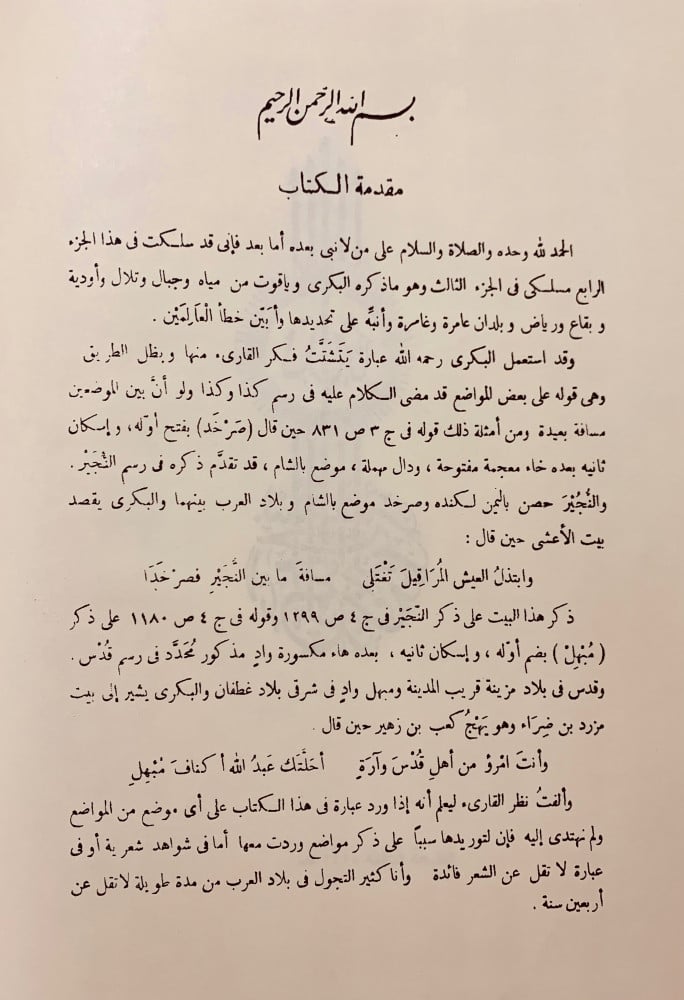 بسم الله الرحمن الرحيم
مقدمة الكتاب
الحمد لله وحده والصلاة والسلام على من لا نبى بعده أما بعد فإنى قد سلكت فى هذا الجزء
الرابع مسلكى فى الجزء الثالث وهو ماذكره البكرى وياقوت من مياه وجبال وتلال وأودية
وبقاع ورياض وبلدان عامرة وغامرة وأنبِّه على تحديدها وأبَيّن خطأ الْعَالِمَيْن .
وقد استعمل البكرى رحمه الله عبارة يَتَشَتَّتُ فكر القارىء منها ويظل الطريق
وهى قوله على بعض المواضع قد مضى الكلام عليه فى رسم كذا وكذا ولو أنَّ بين الموضعين
مسافة بعيدة ومن أمثلة ذلك قوله فى ج ٣ ص ٨٣١ حين قال (صَرْخَد) بفتح أوّله، وإسكان
ثانيه بعده خاء معجمة مفتوحة ، ودال مهملة ، موضع بالشام ، قد تقدَّم ذكره فى رسم النُّجَيْر .
والنُّجَيْرَ حصن باليمن لكنده وصرخد موضع بالشام وبلاد العرب بينهما والبكرى يقصد
بيت الأعشى حين قال :
وابتذلُ العيش المُرَاقِيلَ تَغْتَلِى مسافةَ ما بين النُّجَيْرِ فصرْخَدَا
ذكر هذا البيت على ذكر النّجَيْر فى ج ٤ ص ١٢٩٩ وقوله فى ج ٤ ص ١١٨٠ على ذكر
( مُبْهِلْ ) بضم أوّله ، وإسكان ثانيه ، بعده هاء مكسورة وادٍ مذكور مُحَدَّد فى رسم قُدْس .
وقدس فى بلاد مزينة قريب المدينة ومبهل وادٍ فى شرقى بلاد غطفان والبكرى يشير إلى بيت
مزرد بن ضِرَاء وهو يَهْجُ كعب بن زهير حين قال .
وأنتَ امْرؤ من أهلِ قُدْسَ وآرَةٍ أحَلَّتَك عَبدُ الله أكنافَ مُبْهِلِ
وألفتُ نظر القارىء ليعلم أنه إذا ورد عبارة فى هذا الكتاب على أى موضع من المواضع
ولم نهتدى إليه فإن لتوريدها سبباً على ذكر مواضع وردت معها أما فى شواهد شعرية أو فى
عبارة لا تقل عن الشعر فائدة وأنا كثير التجول فى بلاد العرب من مدة طويلة لا تقل عن
أربعين سنة .